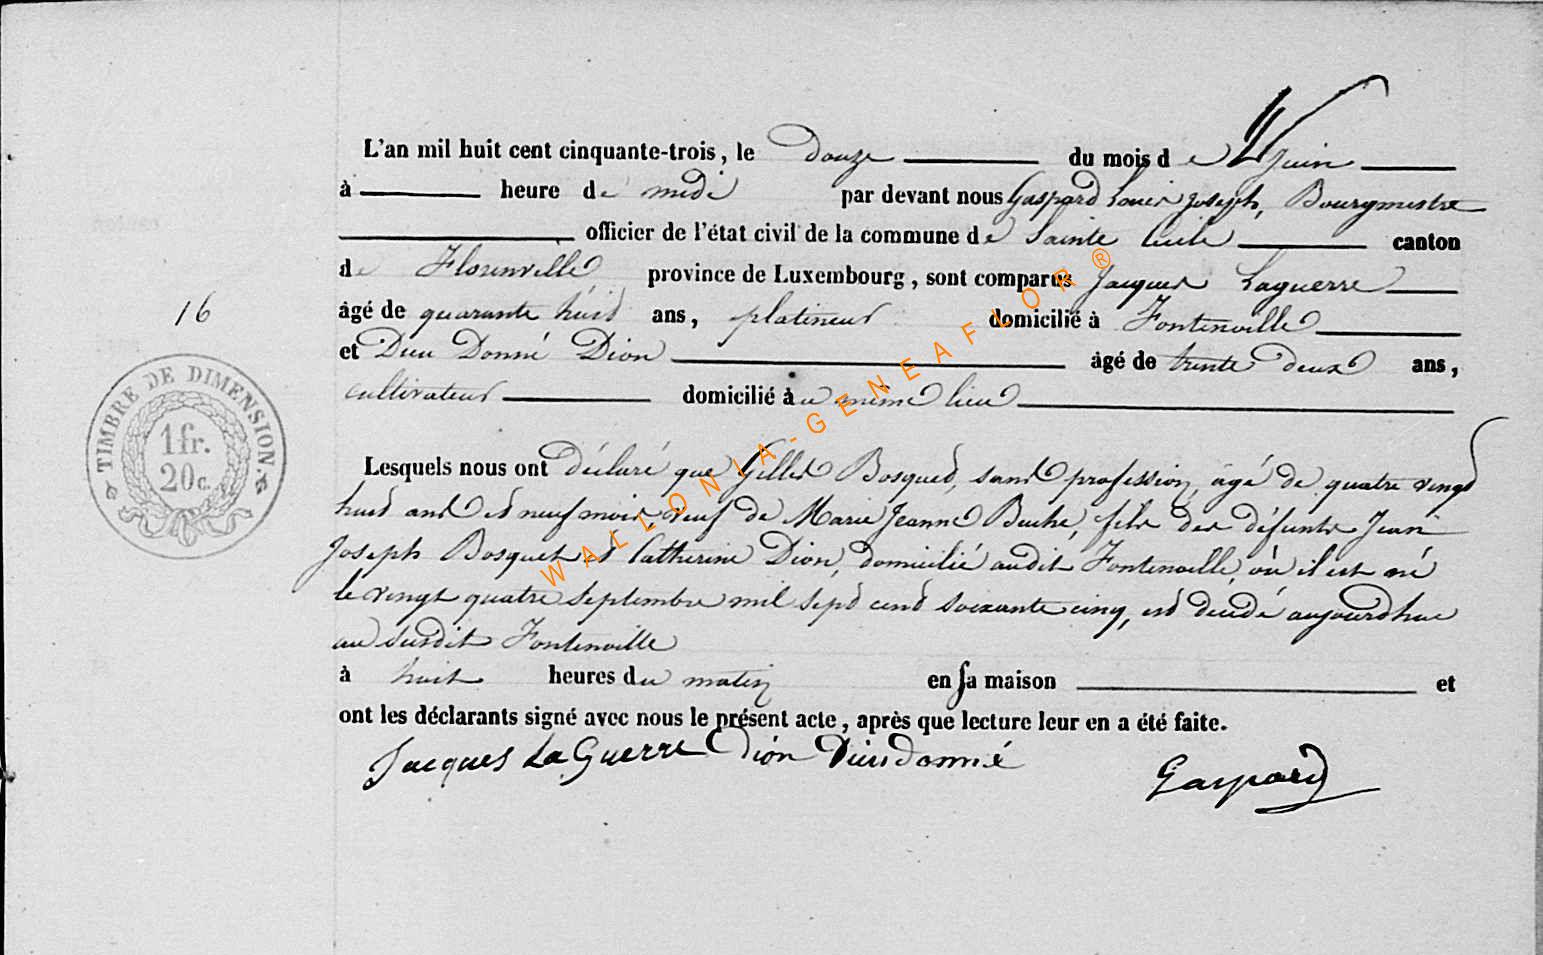 L'an mil huit cent cinquante-trois, le douze du mois de Juin
à heure de midi par devant nous Gaspard Louis Joseph, Bourgmestre
officier de l'état civil de la commune de Sainte Cécile canton
de Florenville province de Luxembourg, sont comparus Jacques Laguerre
16
âgé de quarante huit ans, platineur domicilié à Fontenoille
et Dieu Donné Dion âgé de trente deux ans,
cultivateur domicilié au même lieu
TIMBRE DE DIMENSION.
1 fr.
20 c.
Lesquels nous ont déclaré que Gilles Bosquet, sans profession, âgé de quatre vingt
huit ans et neuf mois, veuf de Marie Jeanne Buché, fils des défunts Jean
Joseph Bosquet et Catherine Dion, domicilié audit Fontenoille, où il est né
le vingt quatre Septembre mil sept cent soixante cinq, est décédé aujourd'hui
au susdit Fontenoille
à huit heures du matin en sa maison et
ont les déclarants signé avec nous le présent acte, après que lecture leur en a été faite.
Jacques La Guerre Dion Dieudonné Gaspard
WALLONIA-GENEAFLOR®